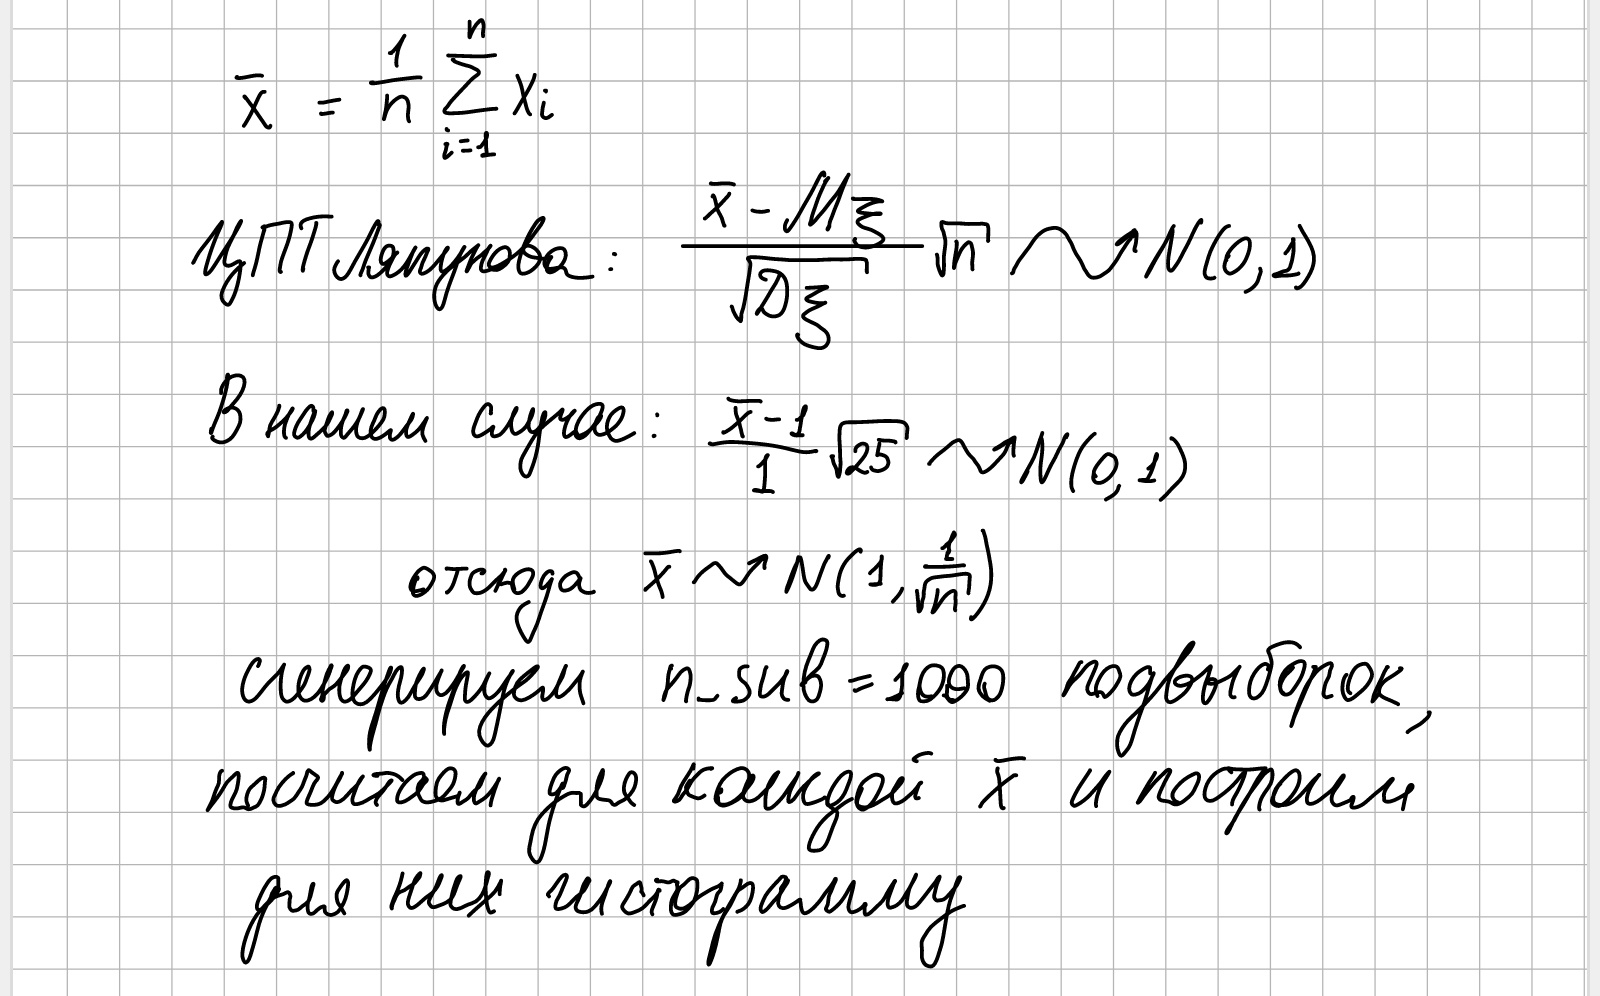 x̄ = 1/n ∑_{i=1}^{n} x_i
ЦПТ Ляпунова: (x̄ - Mξ)/√Dξ √n ⇝ N(0,1)
В нашем случае: (x̄ - 1)/1 √25 ⇝ N(0,1)
отсюда x̄ ⇝ N(1, 1/√n)
сгенерируем n_sub = 1000 подвыборок,
посчитаем для каждой x̄ и построим
для них гистограмму